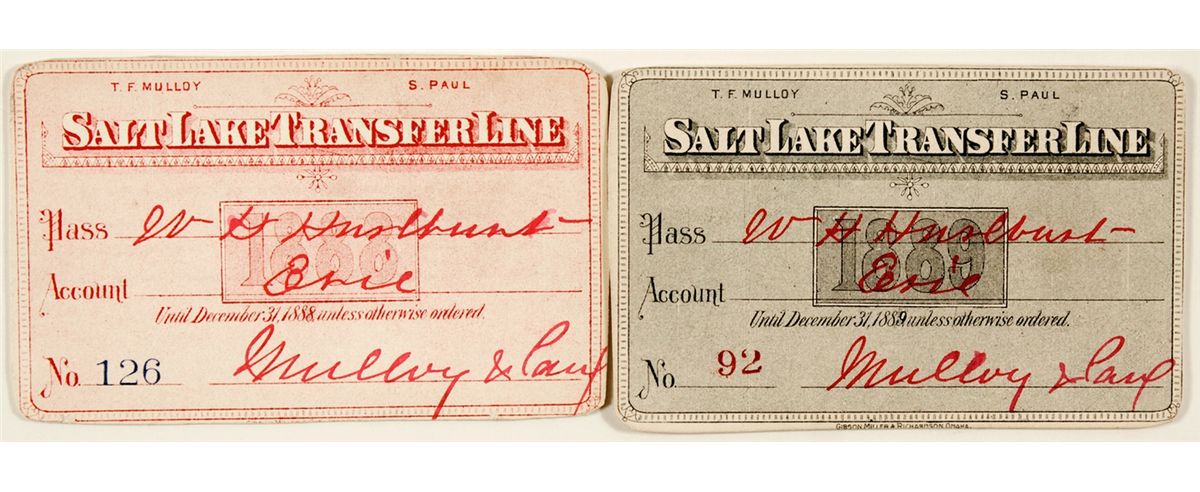 T. F. MULLOY S. PAUL
SALT LAKE TRANSFER LINE
Pass W H Hurlburt
1888
Account Erie
Until December 31, 1888, unless otherwise ordered.
No. 126 Mulloy & Paul
T. F. MULLOY S. PAUL
SALT LAKE TRANSFER LINE
Pass W H Hurlburt
1889
Account Erie
Until December 31, 1889, unless otherwise ordered.
No. 92 Mulloy & Paul
GIBSON, MILLER & RICHARDSON, OMAHA.